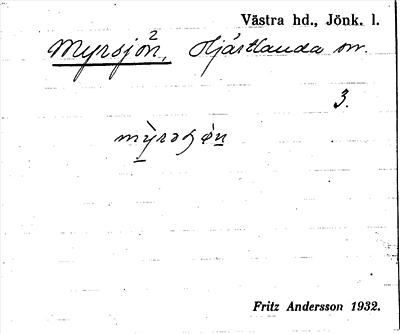 Västra hd., Jönk. l.
Myrsjön, 2 Hjärtlanda sn.
3.
Fritz Andersson 1932.